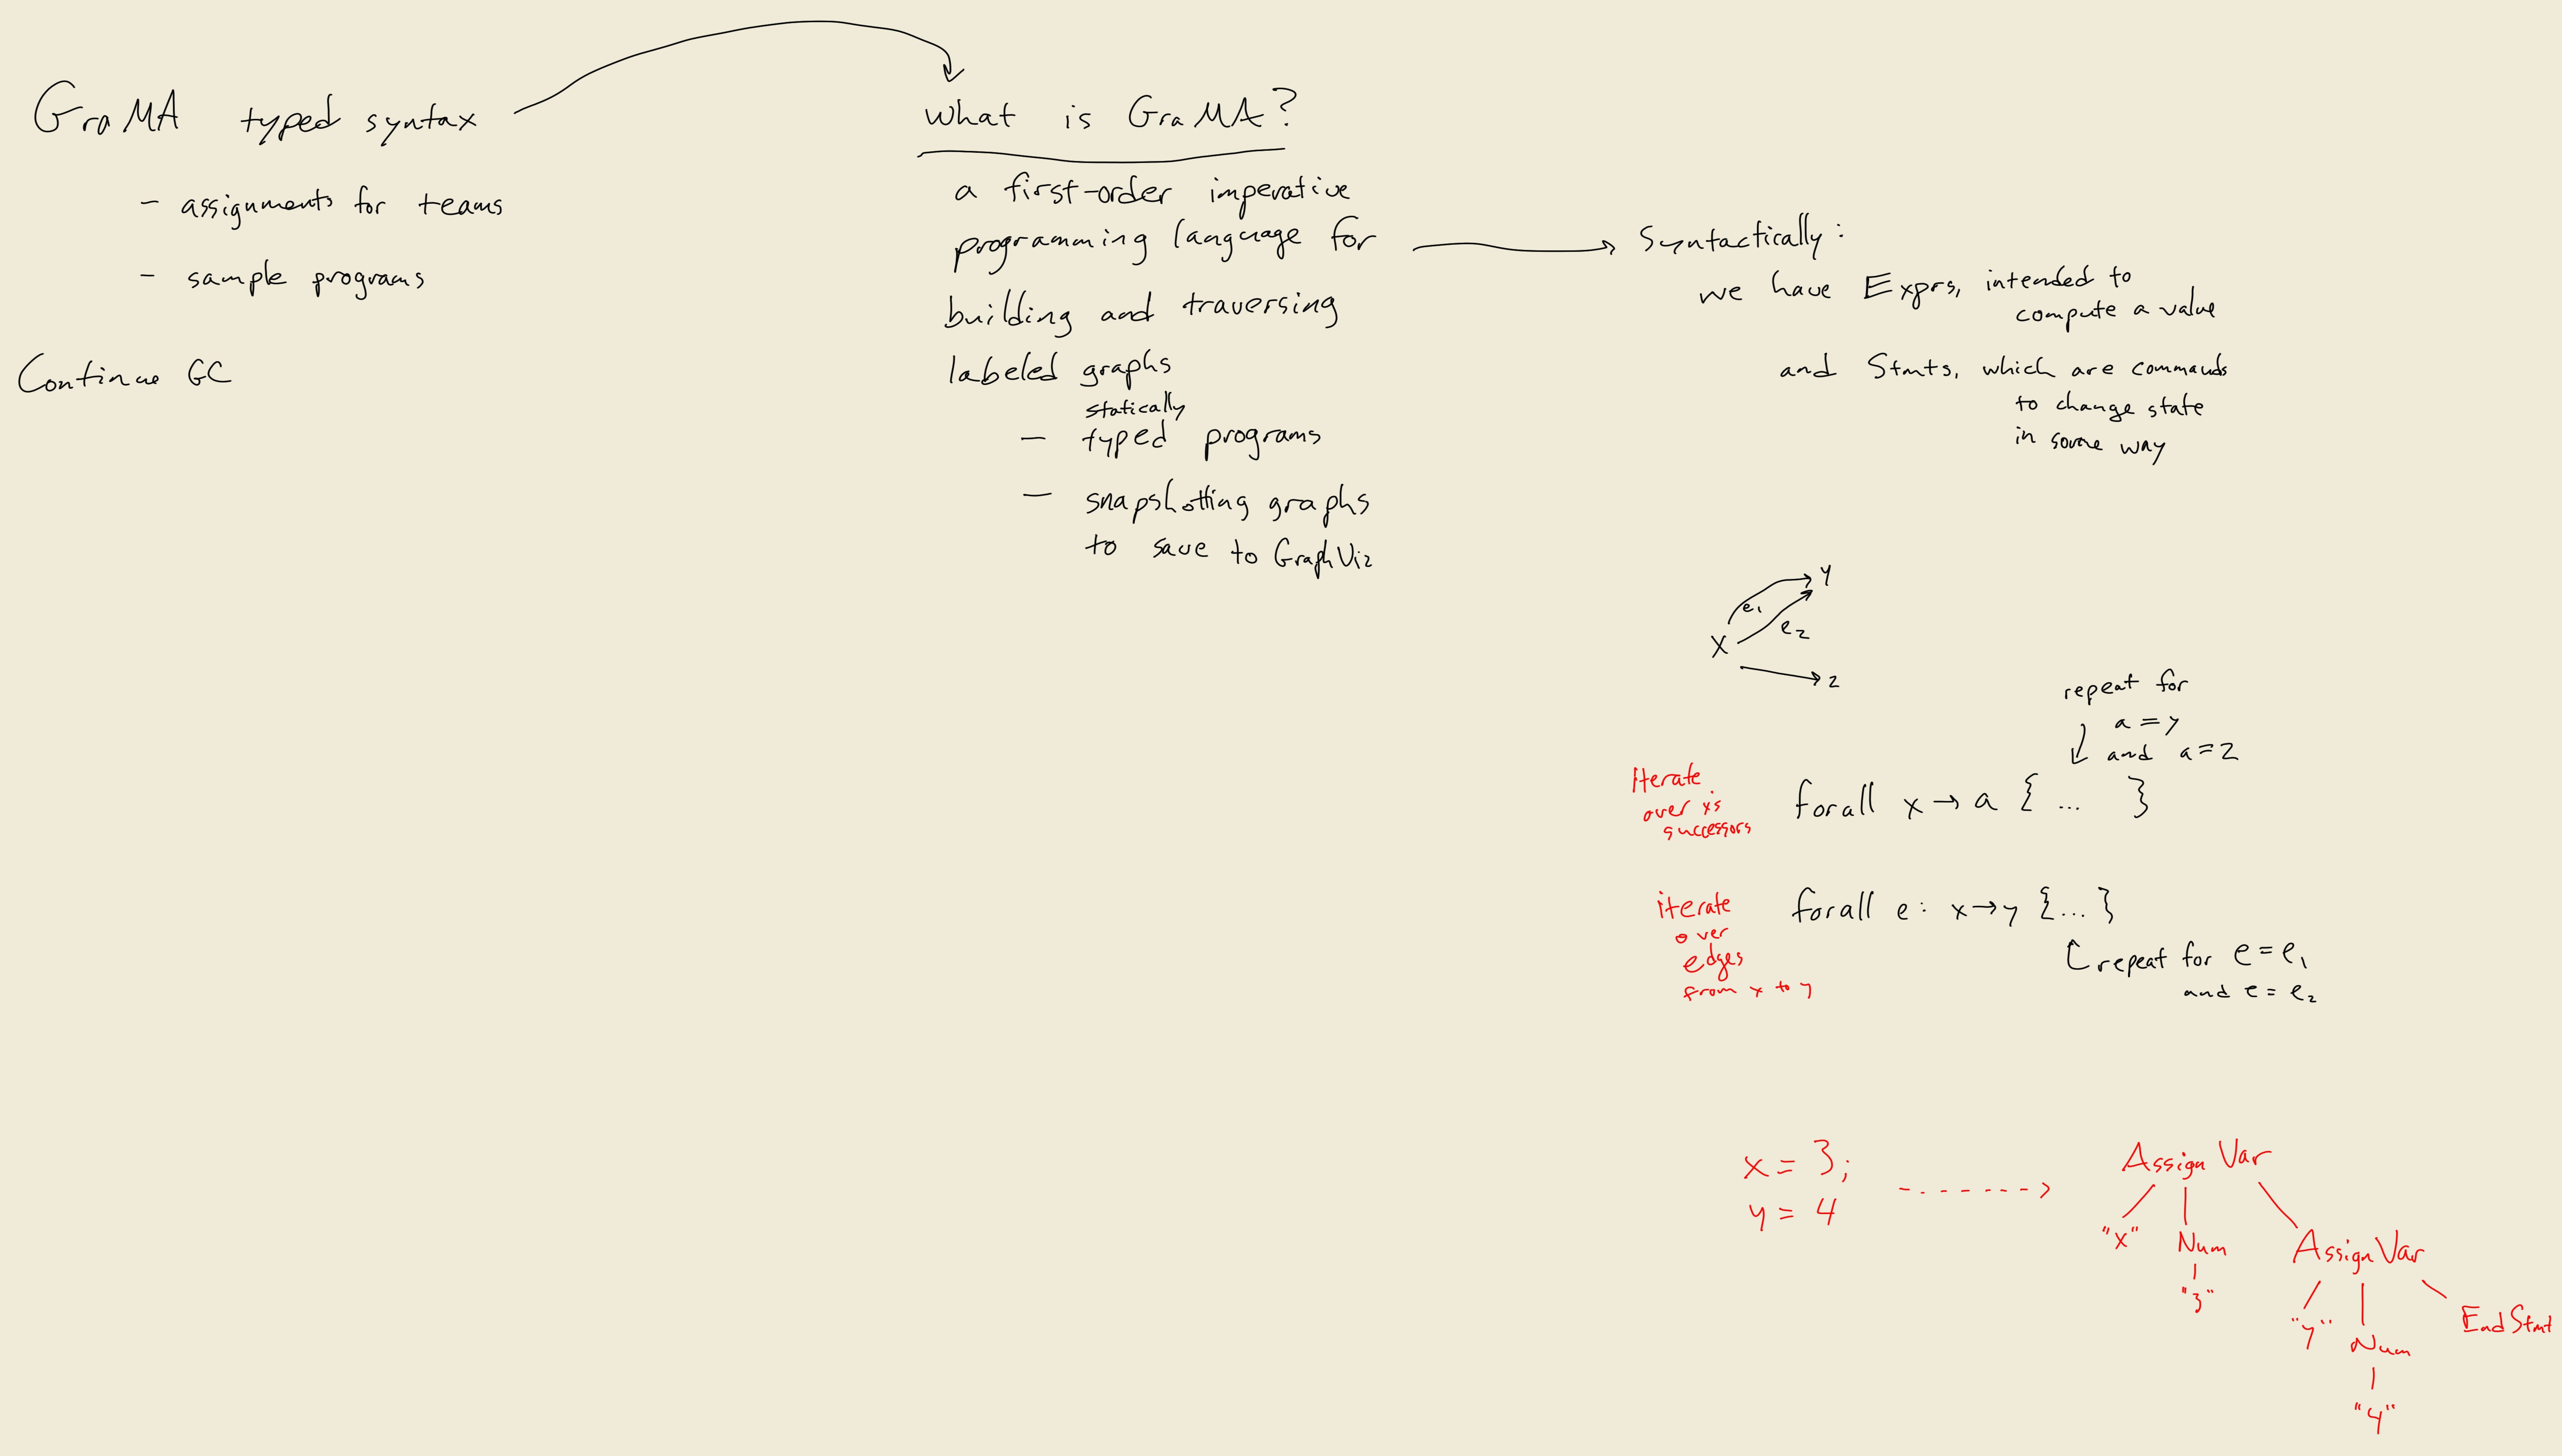 GraMA typed syntax
- assignments for teams
- sample programs
Continue GC
What is GraMA?
a first-order imperative
programming language for
building and traversing
labeled graphs
statically
- typed programs
- snapshotting graphs
to save to GraphViz
Syntactically:
we have Exprs, intended to
compute a value
and Stmts, which are commands
to change state
in some way
y
e1
e2
x
z
repeat for
a = y
and a = z
iterate
over x's
successors
forall x → a { ... }
iterate
over
edges
from x to y
forall e: x → y {...}
repeat for e = e1
and e = e2
x = 3;
y = 4
Assign Var
"x"
Num
"3"
AssignVar
"y"
Num
"4"
EndStmt